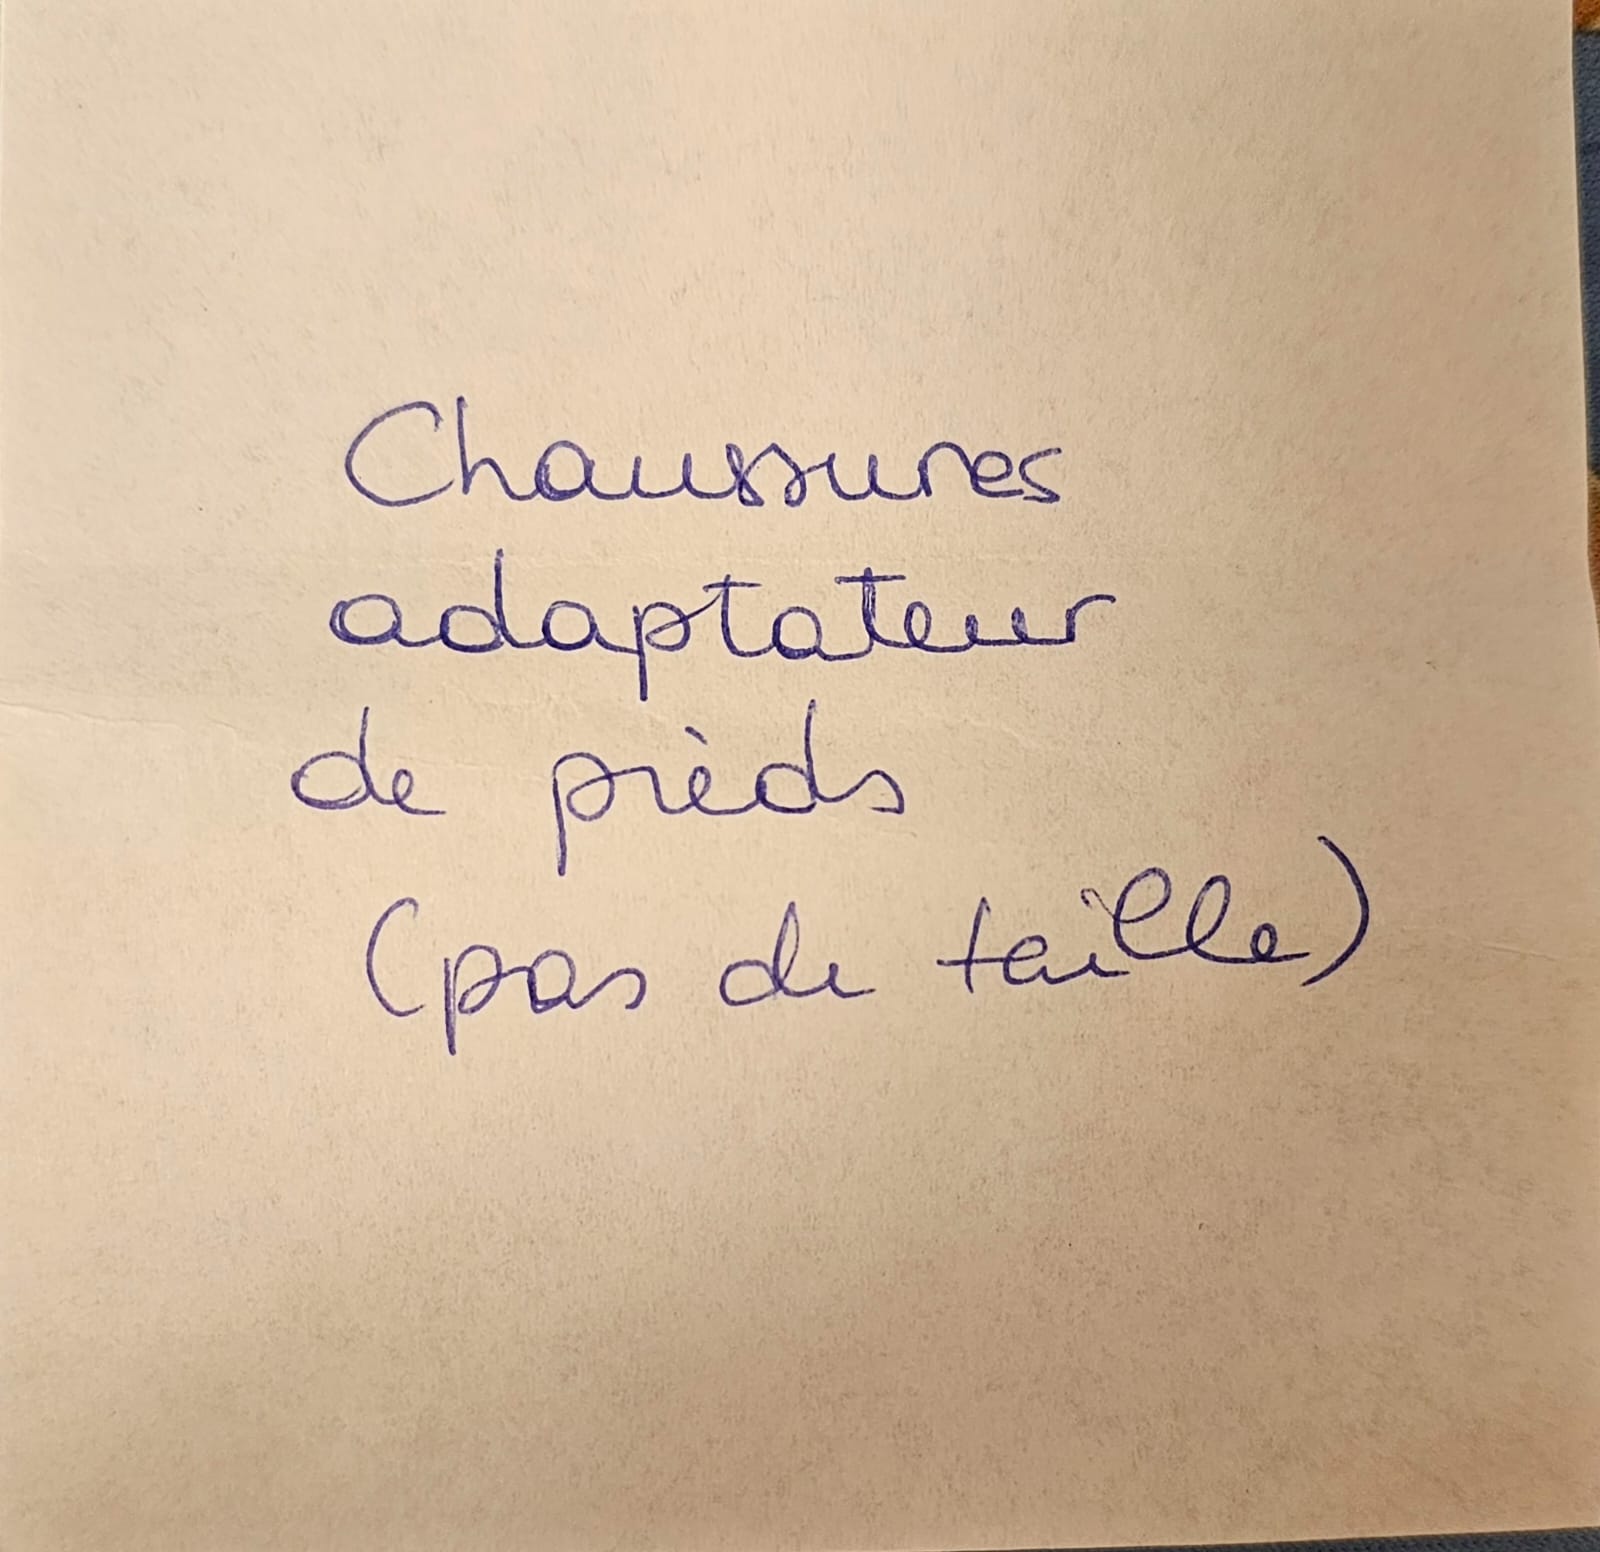 Chaussures
adaptateur
de pièds
(pas de taille)